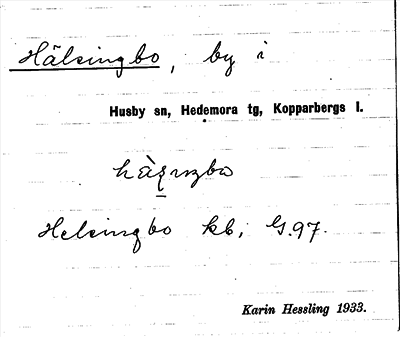 Hälsingbo, by i
Husby sn, Hedemora tg, Kopparbergs l.
Helsingbo kb; G.97.
Karin Hessling 1933.